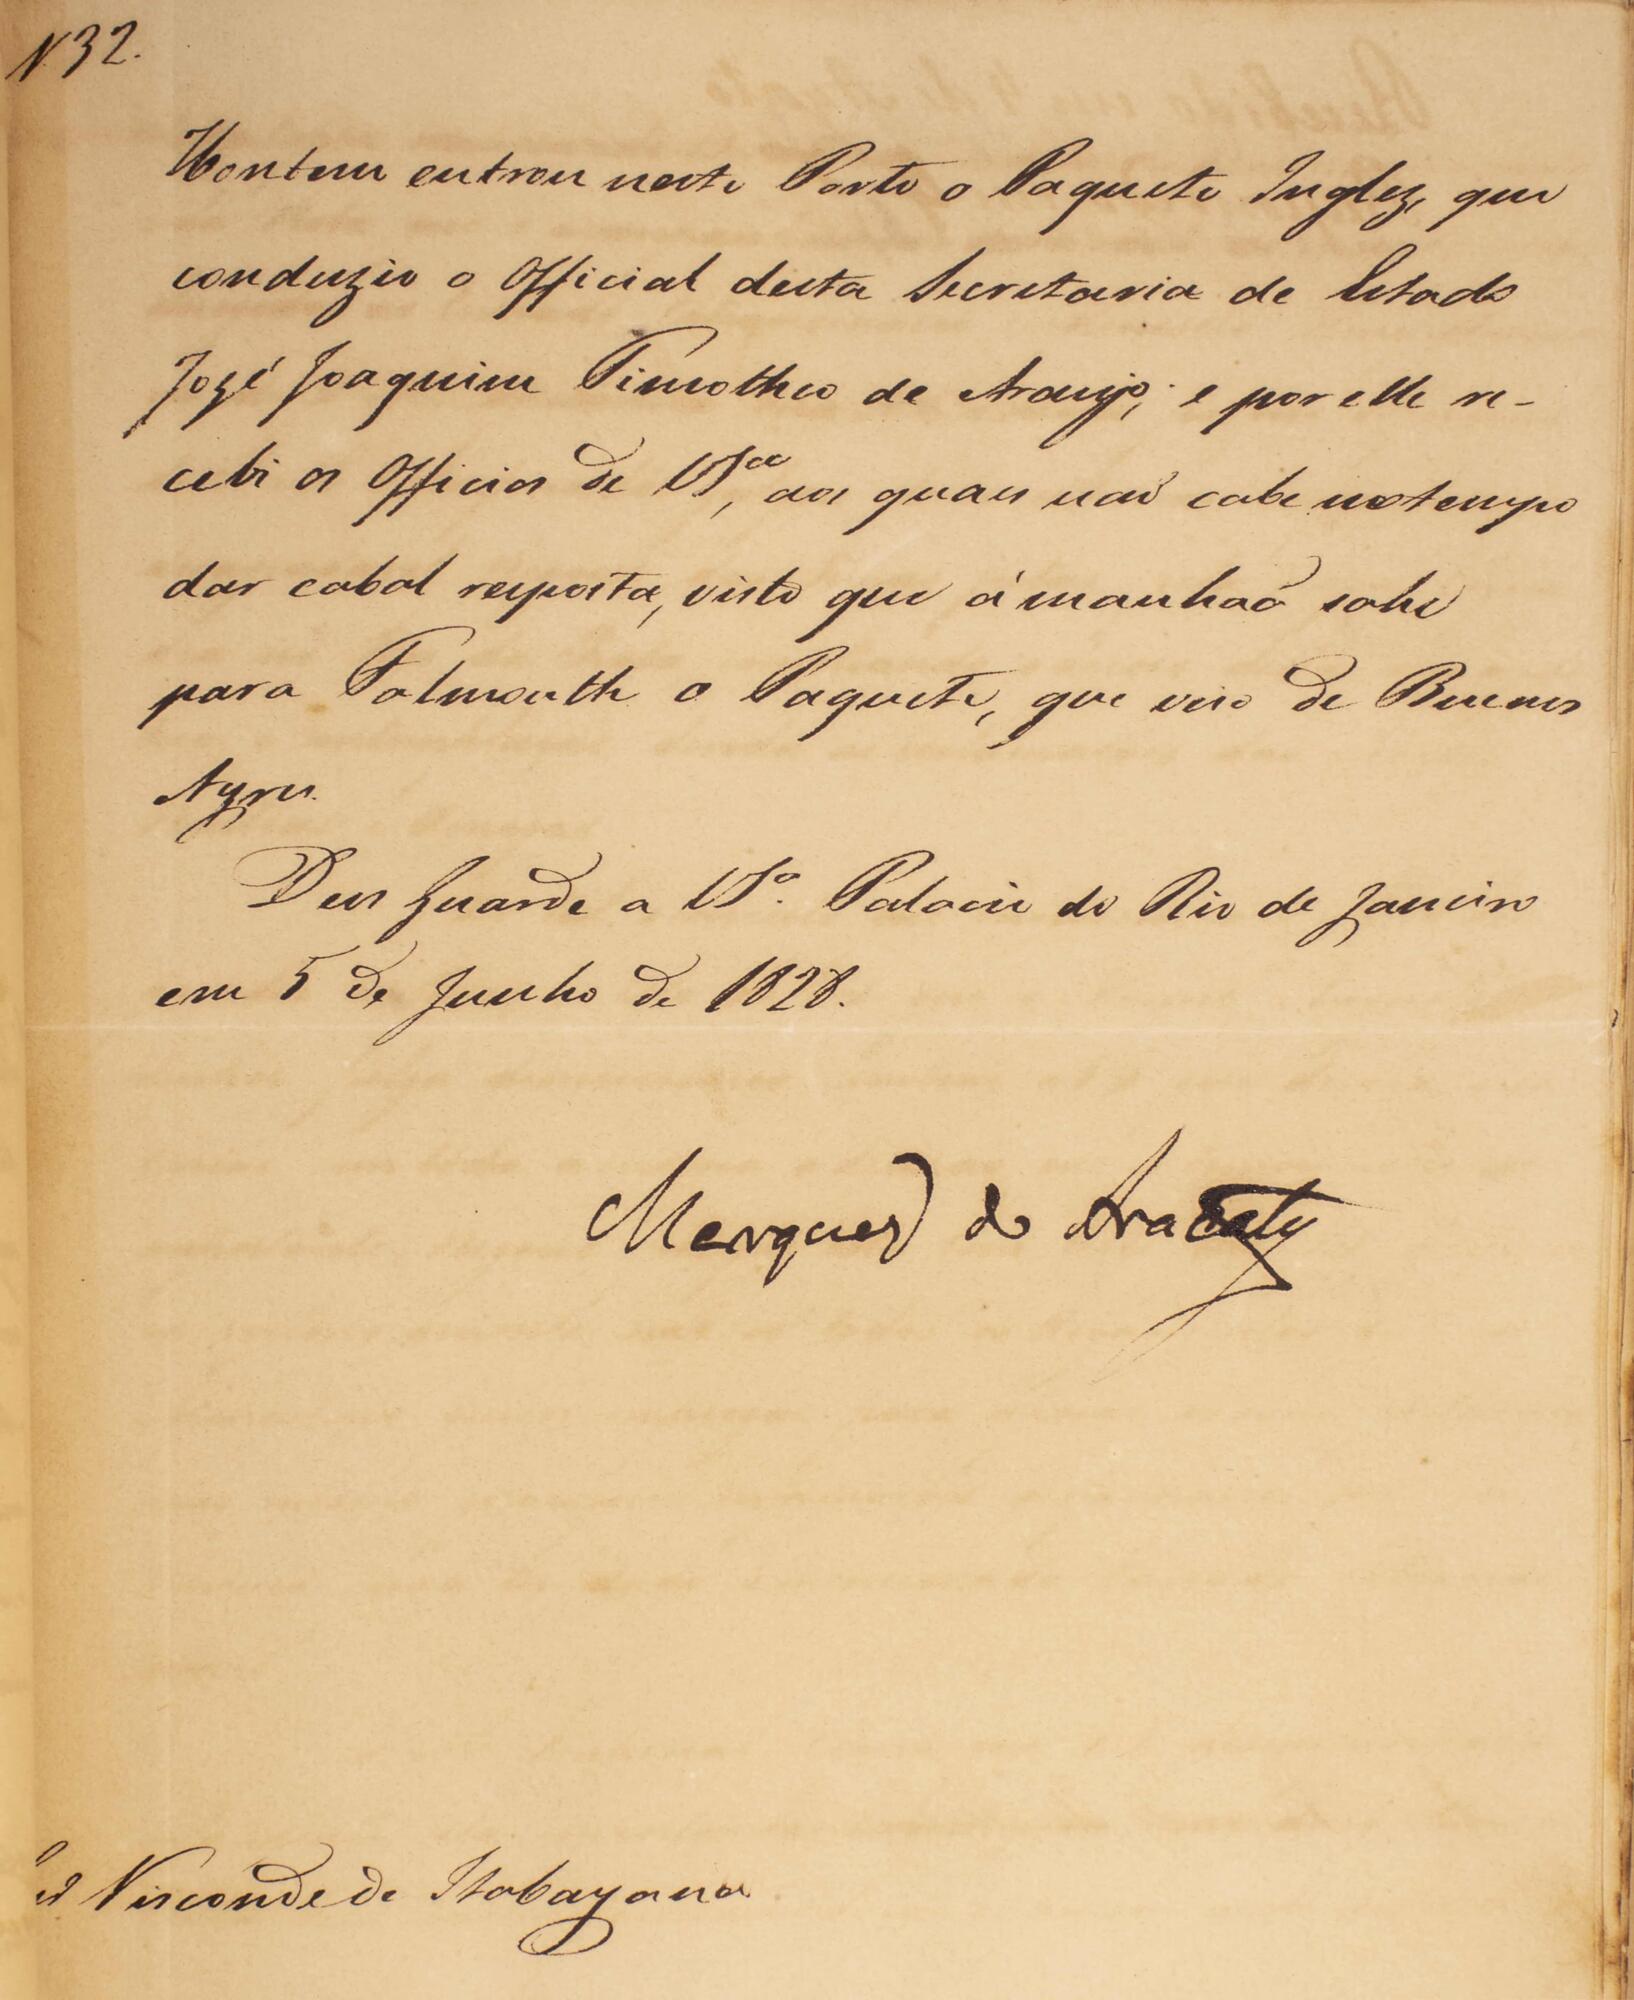 N 32.
Hontem entrou neste Porto o Paquete Inglez, que
conduzio o Official desta Secretaria de Estado
Jozé Joaquim Timotheo de Araujo; e por elle re-
cebi os Officios de VSª, aos quaes naõ cabe no tempo
dar cabal resposta, visto que á manhaõ sahe
para Falmouth o Paquete, que veio de Buenos
Ayres.
Deus Guarde a VSª. Palacio do Rio de Janeiro
em 5 de Junho de 1828.
Marquez do Aracaty
Visconde de Itabayana